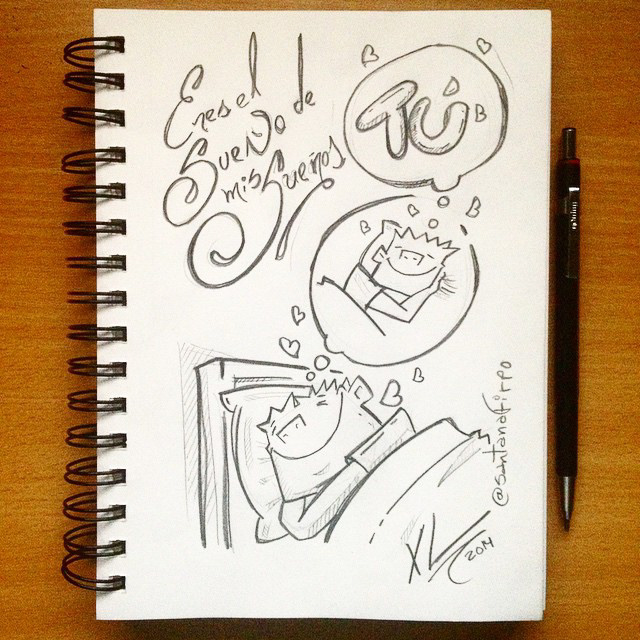 Eres el
Sueño de
mis Sueños
TÚ
@santanafirpo
XL
2014